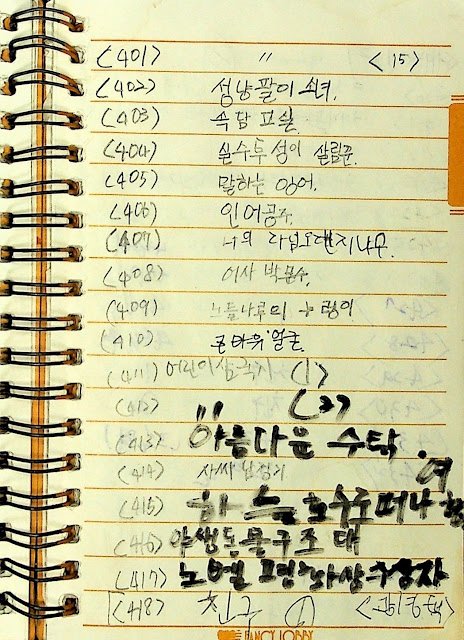 <401> " <15>
<402> 성냥팔이 소녀.
<403> 속담 교실.
<404> 실수투성이 살림꾼.
<405> 말하는 잉어.
<406> 인어공주.
<407> 나의 라임오렌지나무.
<408> 어사 박문수.
<409>
<410> 큰바위 얼굴.
<411> 어린이 삼국지 <1>
<412> " <2>
<413> 아름다운 수탉.
<414> 사씨 남정기
<415> 하늘 호수로 떠나
여
<416> 야생동물구조대
<417> 노벨 평화상 수상자
<418> 친구 ①
FANCY LOBBY